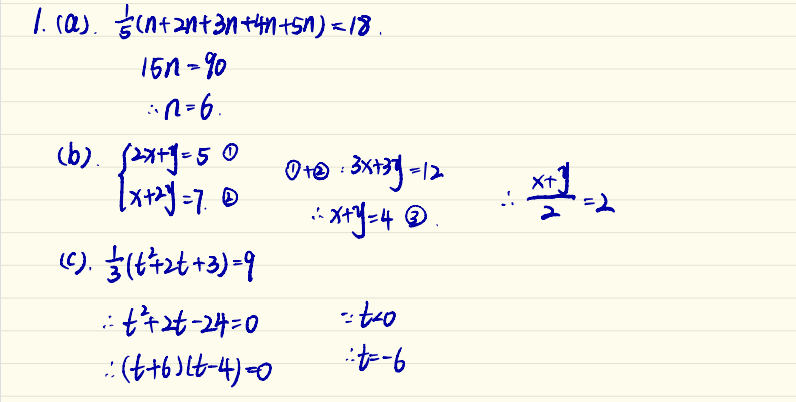 1. (a). 1/5(n+2n+3n+4n+5n)=18.
15n=90
∴n=6.
(b). {2x+y=5 ①
x+2y=7. ②
①+②: 3x+3y=12
∴x+y=4 ③.
∴ (x+y)/2=2
(c). 1/3(t²+2t+3)=9
∴t²+2t-24=0
∴(t+6)(t-4)=0
∵t<0
∴t=-6